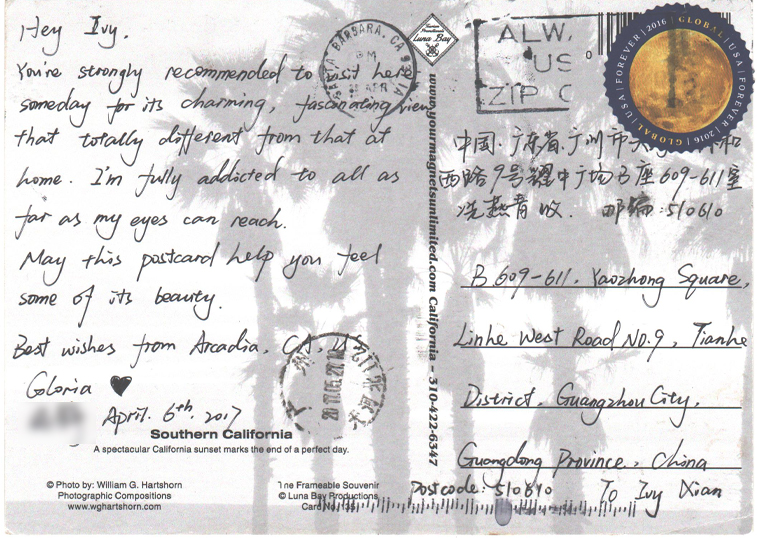 Hey Ivy,
You're strongly recommended to visit here
someday for its charming, fascinating view
that totally different from that at
home. I'm fully addicted to all as
far as my eyes can reach.
May this postcard help you feel
some of its beauty.
Best wishes from Arcadia, CA,
Gloria ♥
April. 6th, 2017
Southern California
A spectacular California sunset marks the end of a perfect day.
© Photo by: William G. Hartshorn
Photographic Compositions
www.wghartshorn.com
The Frameable Souvenir
© Luna Bay Productions
Card No. 135
SANTA BARBARA, CA
PM
APR
Luna Bay
www.yourmagnetsunlimited.com California – 310-422-6347
ALW.
US
ZIP C
0
FOREVER | 2016 | GLOBAL | USA | FOREVER | 2016 | GLOBAL | USA
中国. 广东省. 广州市天
西路9号耀中广场B座609-611室
冼燕青收. 邮编: 510610
B 609-611, Yaozhong Square,
Linhe West Road No.9, Tianhe
District, Guangzhou City,
Guangdong Province, China
Postcode: 510610 To Ivy Xian